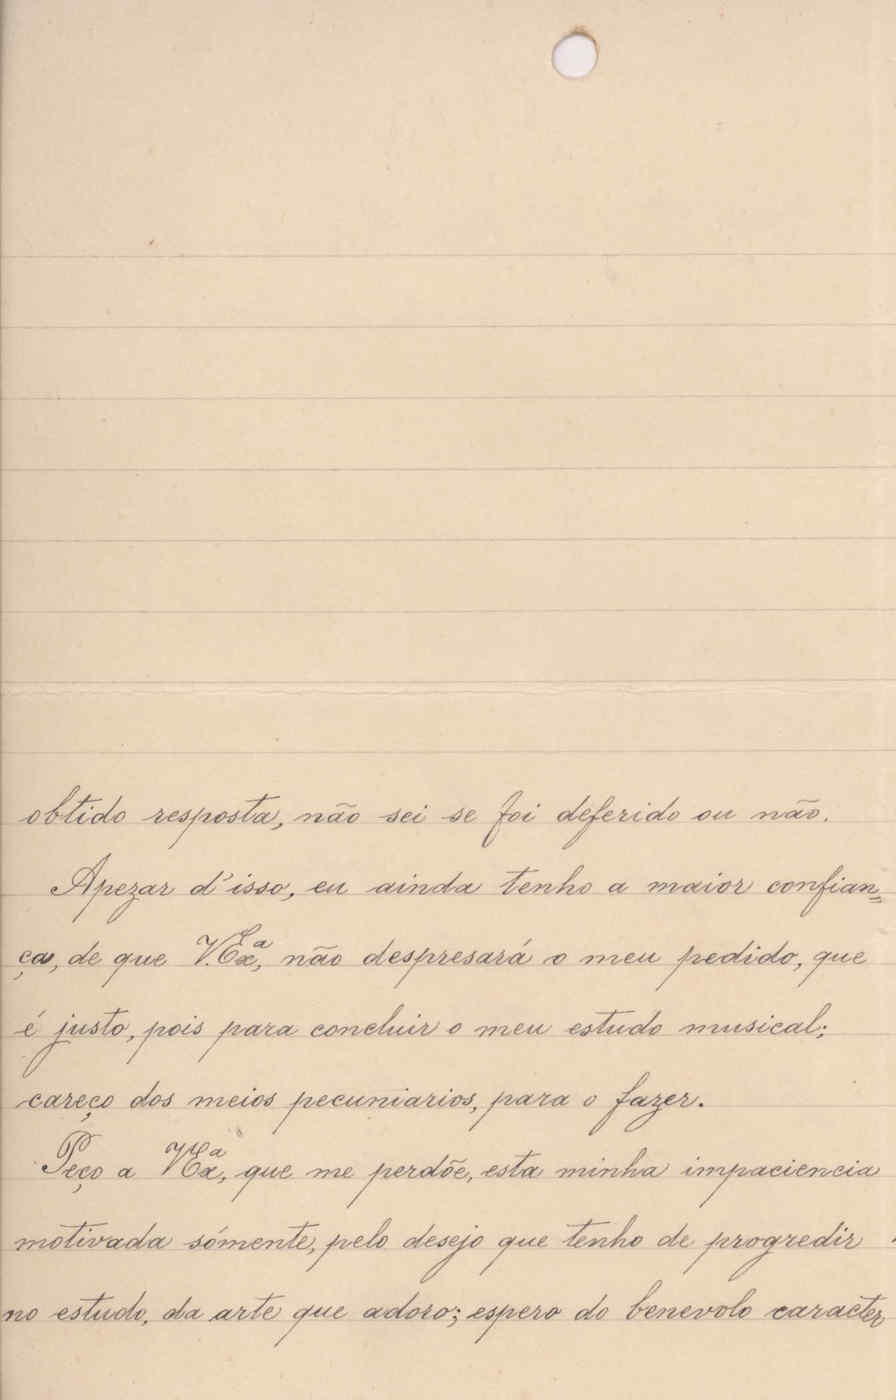 obtido resposta, não sei se foi deferido ou não.
Apezar d'isso, eu ainda tenho a maior confian=
ça, de que V. Exª, não despresará o meu pedido, que
é justo, pois para concluir o meu estudo musical;
careço dos meios pecuniarios, para o fazer.
Peço a V Exª, que me perdõe, esta minha impaciencia
motivada sómente, pelo desejo que tenho de progredir
no estudo, da arte que adoro; espero do benevolo caracter